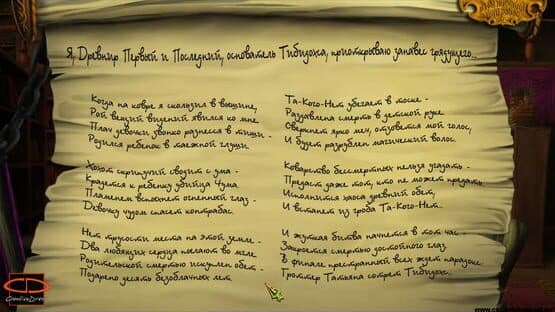 Я, Древнир Первый и Последний, основатель Тибидохса, приоткрываю занавес грядущего...
Когда на ковре я скользил в вышине,
Рой вещий видений явился ко мне.
Плач девочки звонко разнесся в тиши -
Родился ребенок в таежной глуши.
Хохот скрипучий сводит с ума -
Крадется к ребенку убийца Чума.
Пламенем вспыхнет огненный глаз -
Девочку чудом спасет контрабас.
Нет трусости места на этой земле -
Два любящих сердца пылают во мгле.
Родительской смертью искуплен обет -
Подарено десять безоблачных лет.
Та-Кого-Нет убегает в тоске -
Раздавлена смерть в детской руке.
Сверкнет ярко меч, отзовется мой голос,
И будет разрублен магический волос.
Коварство бессмертных нельзя угадать -
Предаст даже тот, кто не может предать.
Исполнится хаоса древний обет,
И встанет из гроба Та-Кого-Нет.
И жуткая битва начнется в тот час -
Закроется смертью достойного глаз.
В финале престранный всех ждет парадокс.
Гроттер Татьяна сотрет Тибидохс.
CreativeDrive